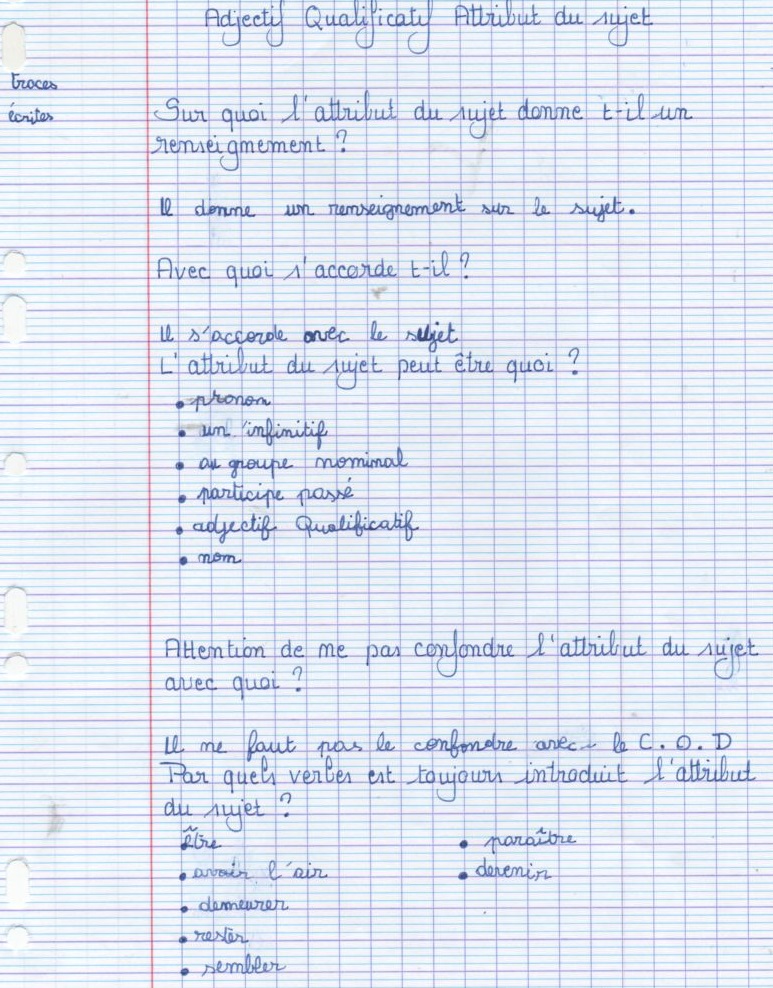 Adjectif Qualificatif Attribut du sujet
traces
écrites
Sur quoi l'attribut du sujet donne t-il un
renseignement ?
Il donne un renseignement sur le sujet.
Avec quoi s'accorde t-il ?
Il s'accorde avec le sujet
L'attribut du sujet peut être quoi ?
• pronom
• un infinitif
• au groupe nominal
• participe passé
• adjectif Qualificatif
• nom
Attention de ne pas confondre l'attribut du sujet
avec quoi ?
Il ne faut pas le confondre avec le C.O.D
Par quels verbes est toujours introduit l'attribut
du sujet ?
être
• avoir l'air
• demeurer
• rester
• sembler
• paraître
• devenir